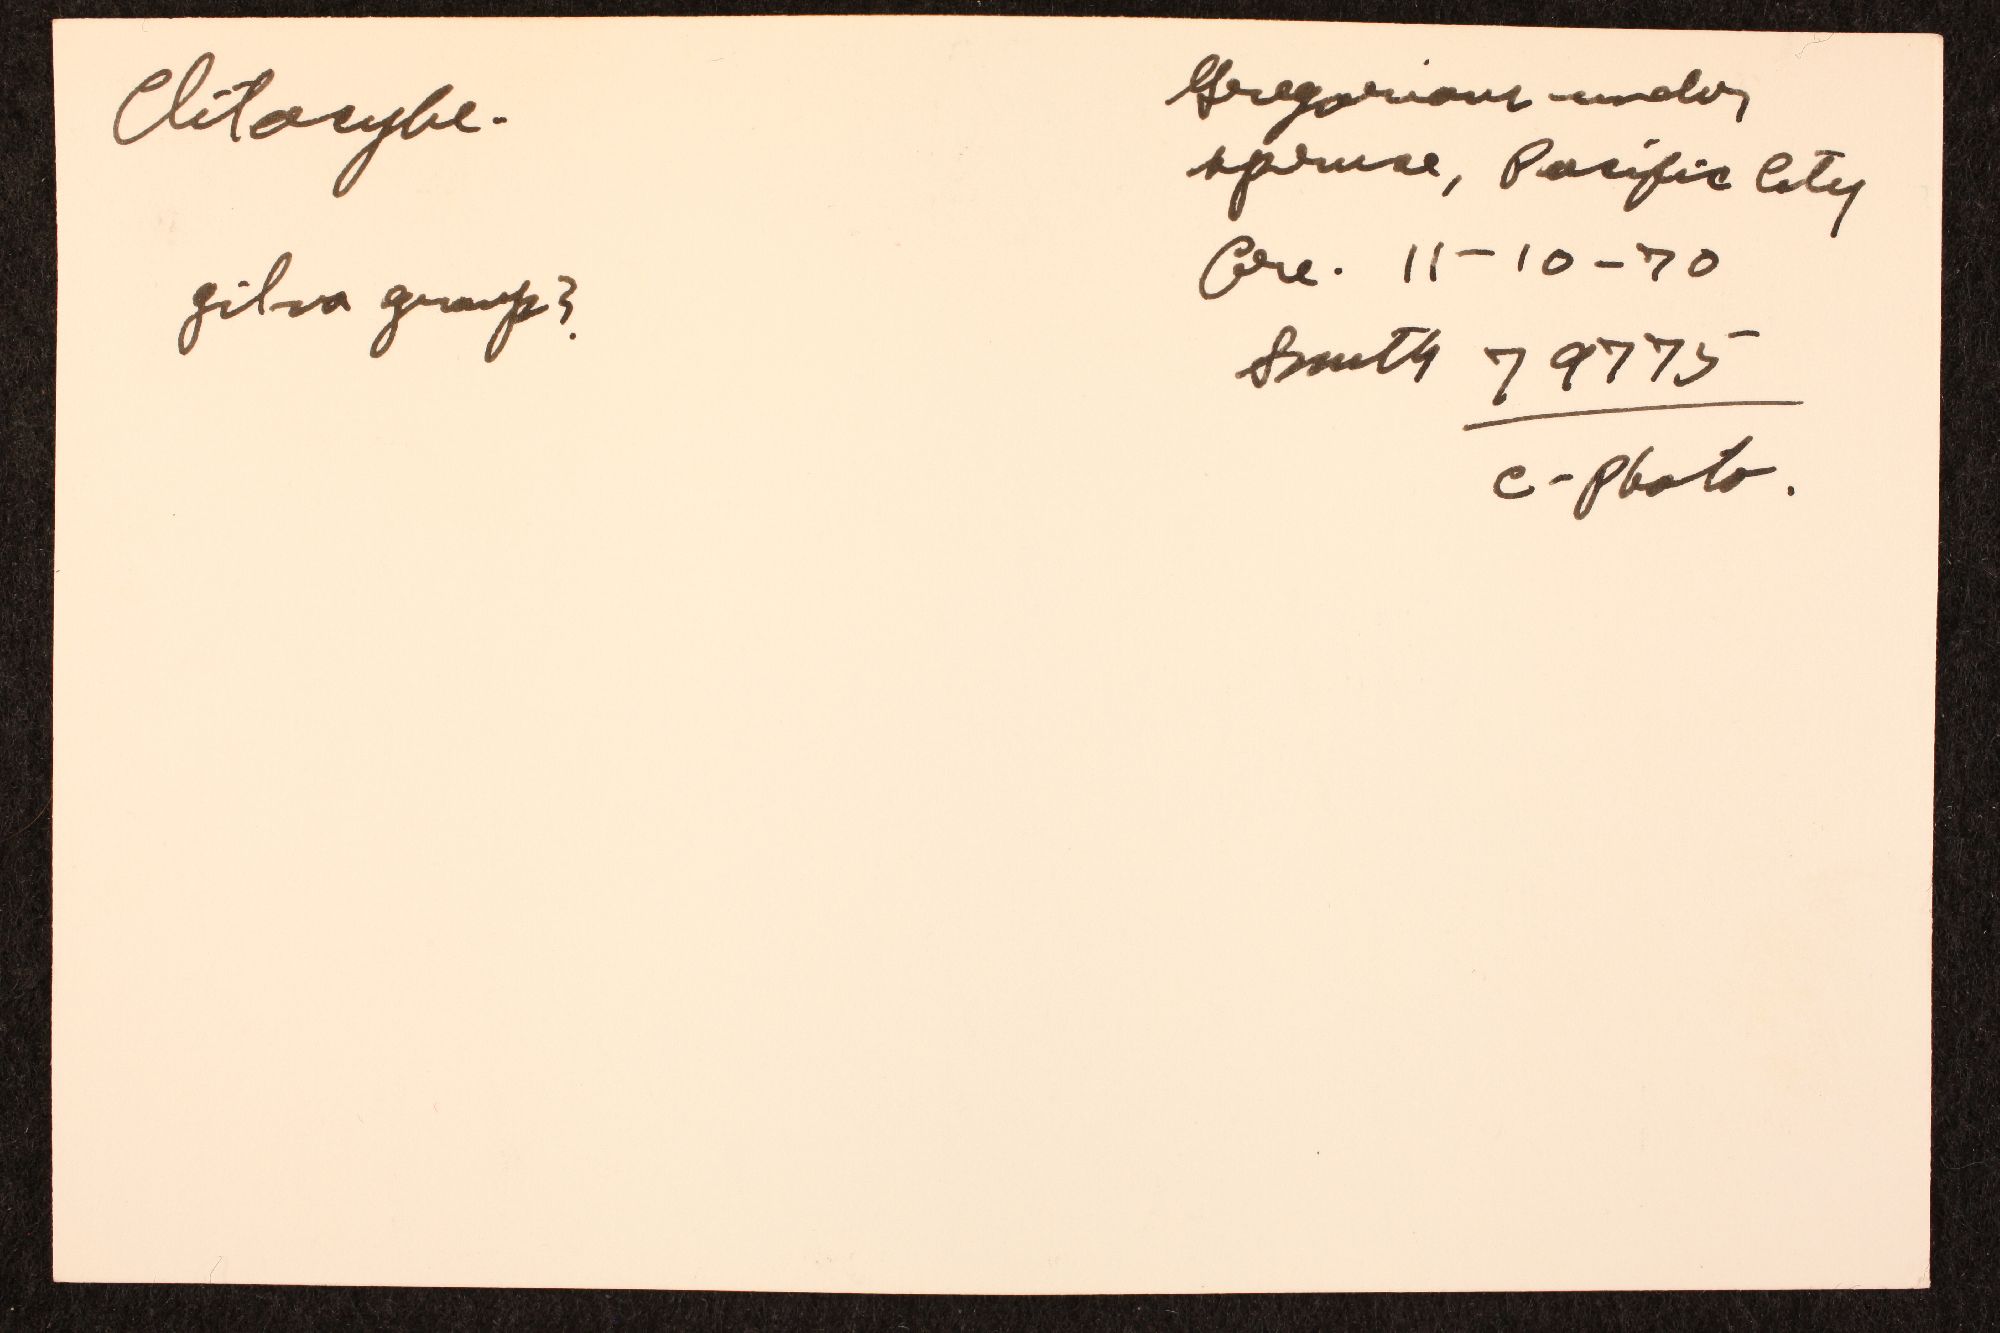 Clitocybe.
gilva group?
Gregarious under
spruce, Pacific City
Ore. 11-10-70
Smith 79775
C-Photo.